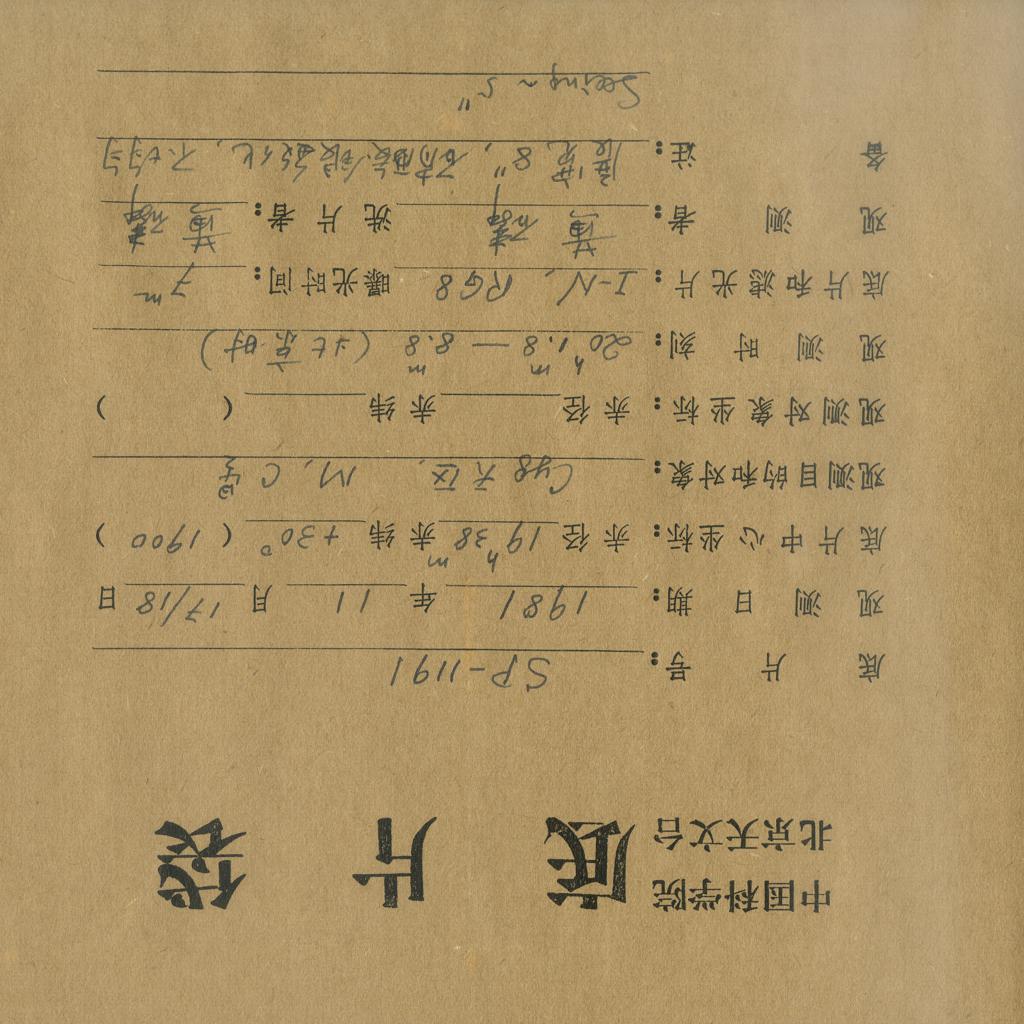 中国科学院
北京天文台
底片袋
底片号: SP-1191
观测日期: 1981年 11月 17/18日
底片中心坐标: 赤径 19h38m 赤纬 +30° (1900)
观测目的和对象: Cyg 天区, M, C 星
观测对象坐标: 赤径 赤纬 ( )
观测时刻: 20h1.8m — 8.8m (北京时)
底片和滤光片: I-N, RG8 曝光时间: 7m
观测者: 黄 洗片者: 黄
备注: 宽8", 硝酸银敏化, 不均匀
Seeing ~ 5"